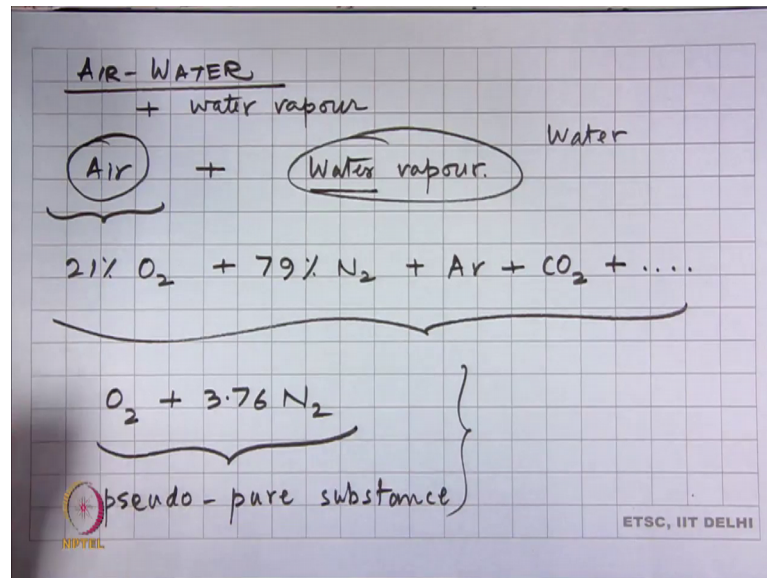 AIR-WATER
+ water vapour
Water
Air + Water vapour.
21% O₂ + 79% N₂ + Ar + CO₂ + ....
O₂ + 3.76 N₂
pseudo-pure substance
ETSC, IIT DELHI
NPTEL